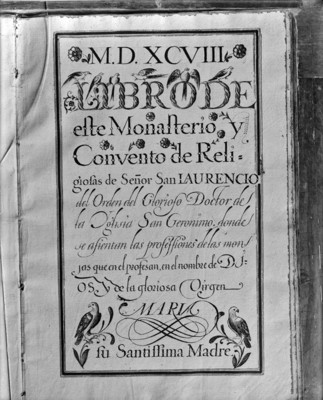 M.D.XCVIII
LIBRO DE
este Monasterio, y
Convento de Reli-
giosas de Señor San LAURENCIO
del Orden del Glorioso Doctor de
la Yglesia San Geronimo, donde
se asientan las professiones de las mon
jas que en el profesan, en el nombre de DI-
OS, Y de la gloriosa Virgen
MARIA
su Santissima Madre